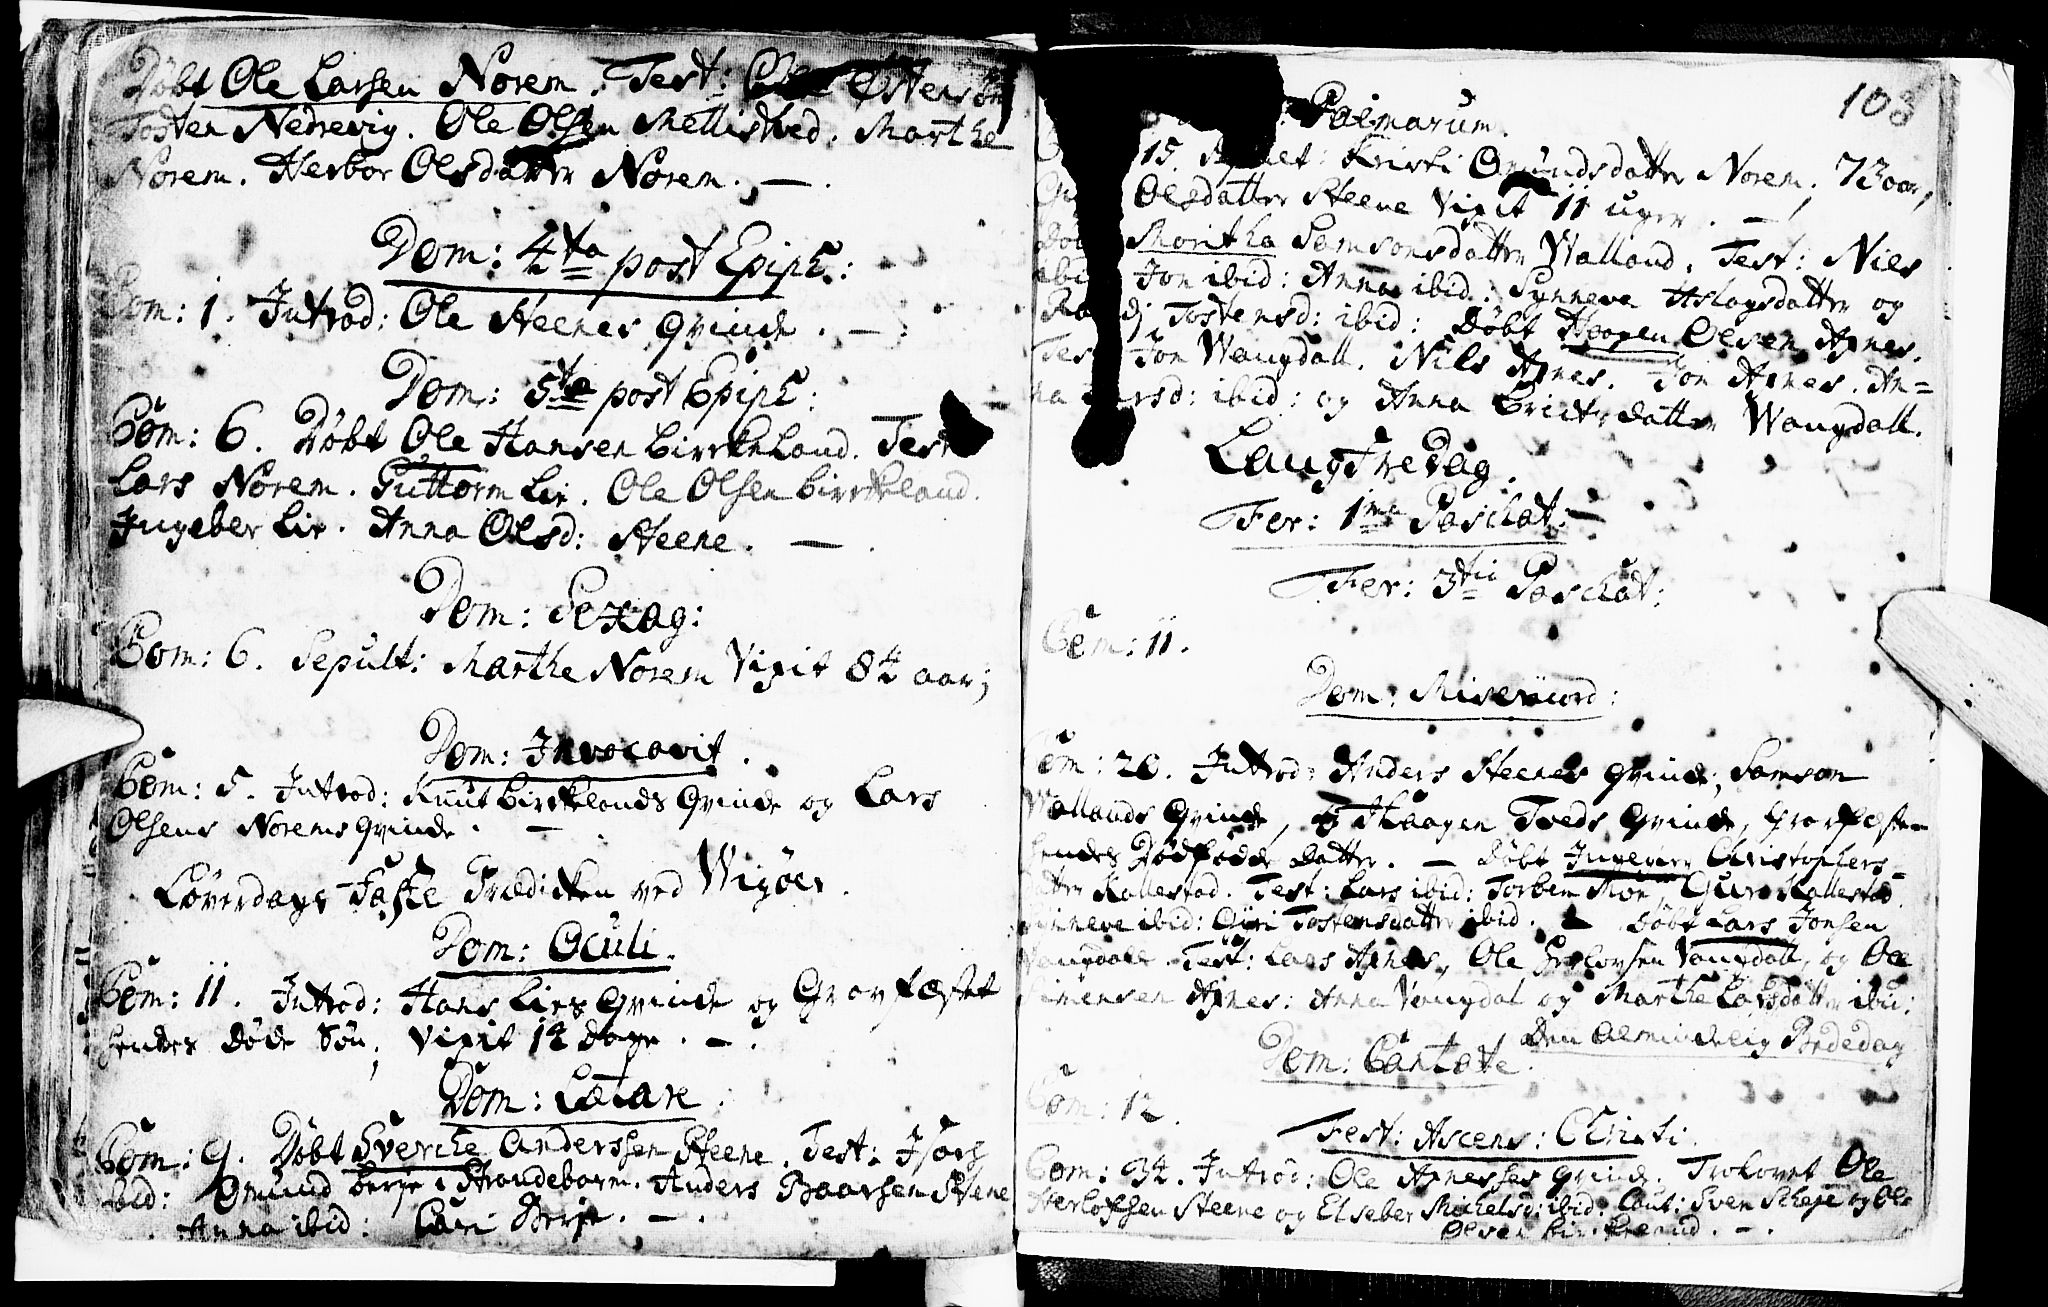 Døbt Ole Larsen Norem. Test: Ole Østensøn
Tosten Nedrevig. Ole Olsen Mellisted. Marthe
Norem. Herbor Olsdatter Norem. —.
Dom: 4ta post Epiph:
Com: 1. Introd: Ole Steenes Qvinde. —.
Dom: 5ta post Epiph:
Com: 6. Døbt Ole Hansen Birkeland. Test
Lars Norem. Guttorm Lie. Ole Olsen Birkeland.
Ingeber Lie. Anna Olsd: Steene. —.
Dom: Sexag:
Com: 6. Sepult: Marthe Norem Vixit 84 aar;
Dom: Invocavit.
Com: 5. Introd: Knut Birkelands Qvinde og Lars
Olsens Norems Qvinde. —
Løverdags Faste Prædicken ved Wigøer.
Dom: Oculi.
Com: 11. Introd: Hans Lies Qvinde og Gravfæstet
hendes døde Søn, Vixit 14 dage. —.
Dom: Lætare.
Com: 9. Døbt Sverche Anderssen Steene. Test: Isach
ibid: Omund Berje i Strandebarm. Anders Baarsen Steene
Anna ibid: Cari Berje. —.
103
Palmarum.
15. Kristi Omundsdatter Norem, 73 aar,
Olsdatter Steene Vixit 11 uger. —,
Døbt Moritha Samsonsdatter Walland. Test: Niels
ibid Jon ibid: Anna ibid: Synneve Aslagsdatter og
Tostensd: ibid: Døbt Haagen Olsen Axnes.
Test Jon Wangdall. Nils Axnes. Jon Axnes. An=
na Larsd: ibid: og Anna Brictsdatter Wangdall.
Langfredag.
Fer: 1ma Paschat: —
Fer: 3tia Paschat:
Com: 11.
Dom: Misericord:
Com: 20. Introd: Anders Steenes Qvinde, Samson
Wallands Qvinde, og Haagen Tveds Qvinde, Gravfæsten
hendes Dødfødde datter. — Døbt Christophers=
datter Kallestad. Test: Lars ibid: Torben Moe, Guro Kallestad.
Sinneve ibid: Guri Tostensdatter ibid. — Døbt Lars Jonsen
Vangdall. Test: Lars Axnes, Ole Vangdall, og Ole
Simensen Axnes: Anna Vangdal og Marthe Larsdatter ibid:
Den Almindelig Bededag
Dom: Cantate.
Com: 12.
Fest: Ascens: Christi.
Com: 34. Introd: Ole Axnesses Qvinde. Trolovet Ole
Herlofsen Steene og Elseber Michelsd: ibid: Caut: Sven Scheje og Ole
Olsen Birkeland. —.